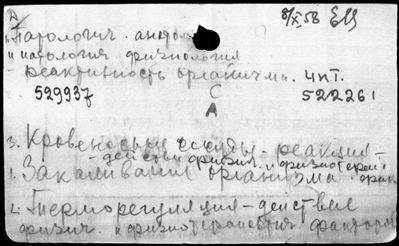 8/X.58 ЕЦ
Патологич. анатом
и патология физиология
- реактивность организма. чпт.
529937 С 522261
А
3. Кровеносные сосуды - реакция -
- действие физич. и физиотерап.
1. Закаливания организма физи
2. Терморегуляция - действие
физич. и физиотерапевтич. факторов